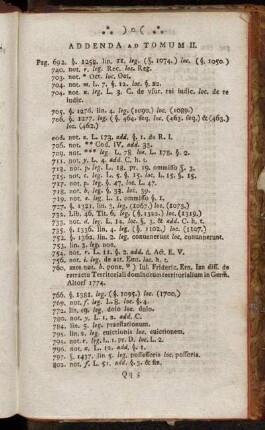 ADDENDA AD TOMUM II.
Pag. 692. §. 1259. lin. 11. leg. (§. 1074.) loc. (§. 1050.)
not. r. leg. Rec. loc. Reg.
703. not. * Oct. loc. Oct.
704. not. m. L. 7. §. 12. loc. §. 22.
704. not. u. leg. L. 3. C. de usur. rei iudic. loc. de re
iudic.
705. §. 1276. lin. 4. leg. (1090.) loc. (1089.)
706. §. 1277. leg. (§. 464. seq. loc. (463. seq.) & (463.)
loc. (462.)
eod. not. z. L. 173. add. §. 1. de R. I.
706. not. ** Cod. IV. add. 33.
709. not. *** leg. L. 78. loc. L. 178. §. 2.
711. not. y. L. 4. add. C. h. t.
713. not. p. leg. L. 18. pr. 19. omisso §. 3.
715. not. c. leg. L. 5. §. 15. loc. L. 15. §. 15.
717. not. p. leg. §. 47. loc. L. 47.
718. not. b. leg. 38. loc. 39.
719. not. z. leg. L. 11. omisso §. 1.
727. §. 1321. lin. 3. leg. (1067.) loc. (1073.)
732. Lib. 46. Tit. 6. leg. (§. 1322.) loc. (1319.)
733. not. d. leg. L. 12. loc. §. 3. & add. C. h. t.
735. §. 1336. lin. 4. leg. (§. 1102.) loc. (1107.)
752. §. 1362. lin. 2. leg. conuenerint loc. conuenerunt.
753. lin. 3. leg. non.
754. not. r. L. 11. §. 2. add. t. Act. E. V.
756. not. i. leg. de act. Emt. loc. h. t.
760. ante not. b. pone. * ) Iul. Frideric. Ern. Isn diss. de
retractu Territoriali dominorum territorialium in Germ.
Altorf 1774.
766. §. 1381. leg. (§. 1095.) loc. (1700.)
769. not. f. leg. L. 8. loc. §. 4.
772. lin. 19. leg. dolo loc. dolo.
780. not. y. L. 1. 2. add. C.
784. lin. 5. leg. praestationum.
795. lin. 2. leg. euictionis loc. euictionem.
801. not. r. leg. L. 1. pr. D. loc. L. 2.
796. not. x. L. 12. add. §. 1.
797. §. 1437. lin. 5. leg. possessoris loc. possoris.
802. not. f. L. 51. add. §. 3. & sin.
Qq 3